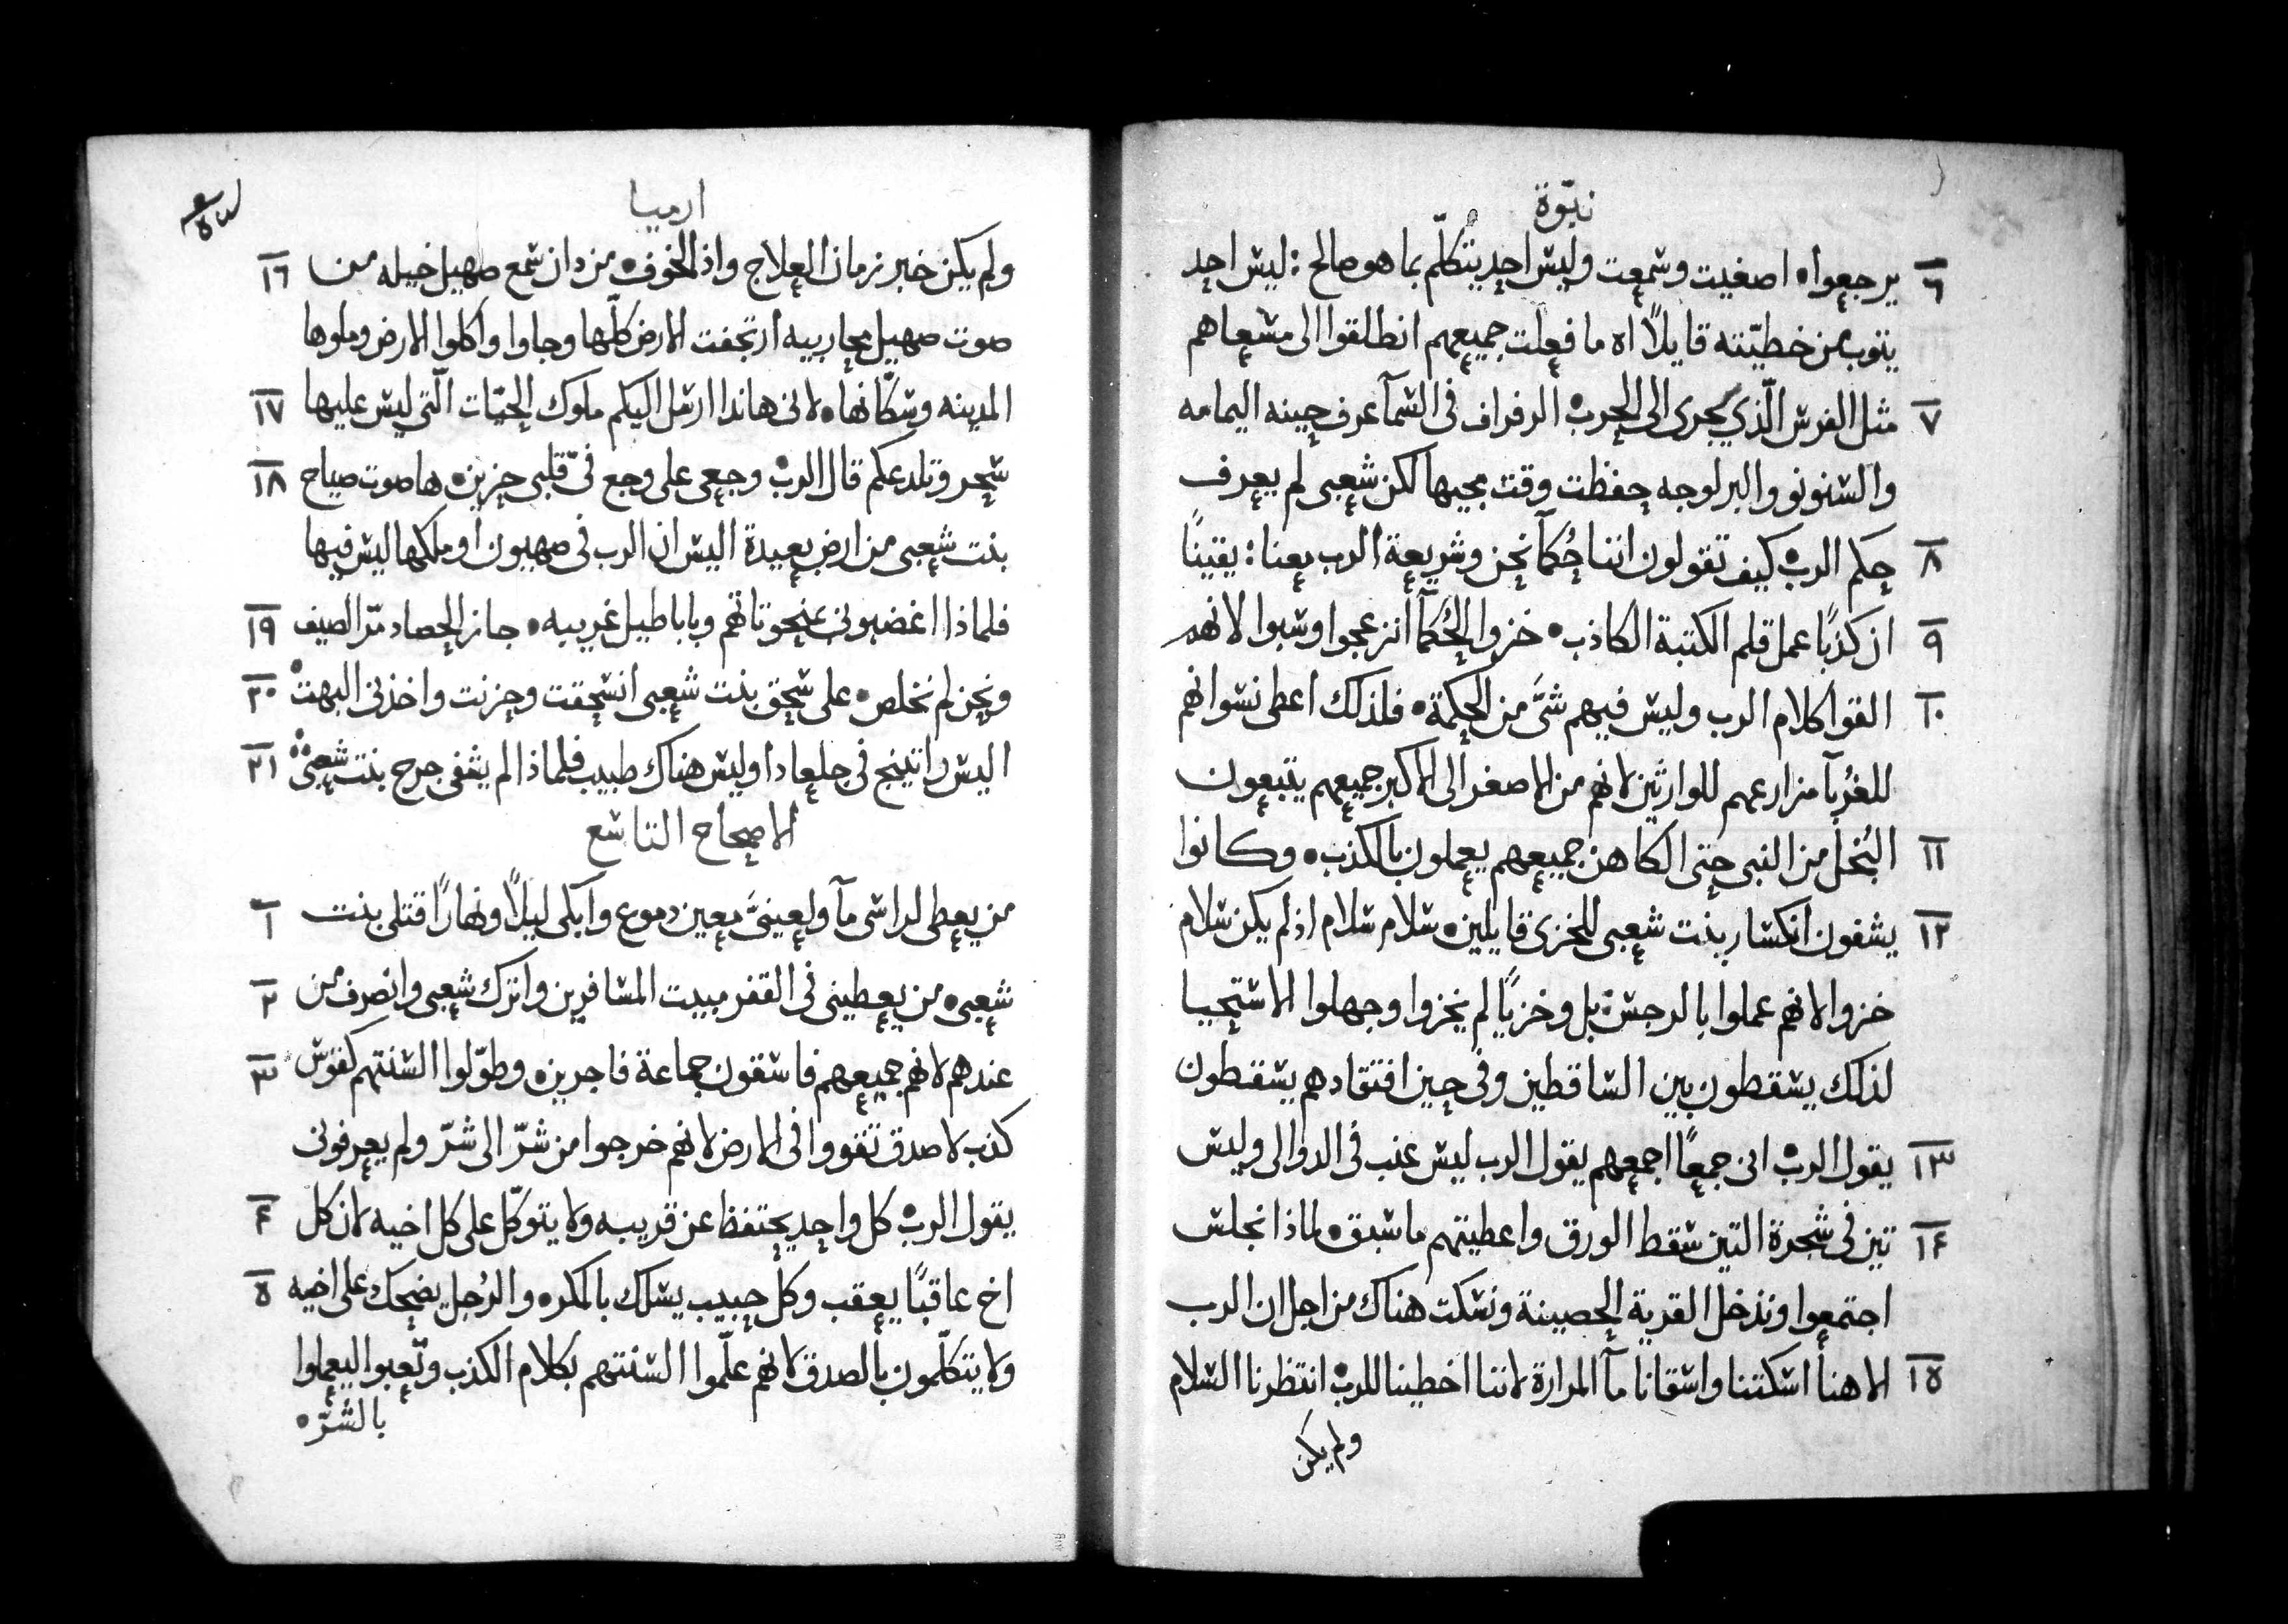 نبّوة
٦ يرجعوا اصغيت وسمعت وليس احد يتكلّم بما هو صالح : ليس احد
يتوب من خطيّته قايلاً اه ما فعلت جميعهم انطلقوا الى مسعاهم
٧ مثل الفرس الّذي يجرى الى الحرب الرفراف فى السمآ عرف حينه اليمامه
والسنونو والبرلوجه حفظت وقت مجيها لكن شعبى لم يعرف
٨ حكم الرب كيف تقولون اننا حُكمآ نحن وشريعة الرب معنا : يقينًا
٩ ان كذبًا عمل قلم الكتبة الكاذب خزوا الحُكمآ انزعجوا وسبوا لانهم
١٠ القوا كلام الرب وليس فيهم شىَّ من الحكمة فلذلك اعطى نسوانهم
للغُربآ مزارعهم للوارثين لانهم من الاصغر الى الاكبر جميعهم يتبعون
١١ البُخل من النبى حتى الكاهن جميعهم يعملون بالكذب وكانوا
١٢ يشفون انكسار بنت شعبى للخزى قايلين سلام سلام اذ لم يكن سلام
خزوا لانهم عملوا بالرجس بل وخزيًا لم يخزوا وجهلوا الاستحيا
لذلك يسقطون بين الساقطين وفى حين افتقادهم يسقطون
١٣ يقول الرب انى جمعًا اجمعهم يقول الرب ليس عنب فى الدوالى وليس
١٤ تين فى شجرة التين سقط الورق واعطيتهم ما سبق لماذا نجلس
اجتمعوا وندخل القرية الحصينة ونسكت هناك من اجل ان الرب
١٥ الاهنا اسكتنا واسقانا مآ المرارة لاننا اخطينا للرب انتظرنا السلام
ولم يكن
ارميا
ولم يكن خير زمان العلاج واذ الخوف من دان سمع صهيل خيله من ١٦
صوت صهيل محاربيه ارتجفت الارض كلّها وجاوا واكلوا الارض وملوها
المدينه وسكّانها لانى هاندا ارسل اليكم ملوك الحيّات الّتى ليس عليها ١٧
سحر وتلدعكم قال الرب وجعى على وجع فىّ قلبى حزين ها صوت صياح ١٨
بنت شعبى من ارض بعيدة اليس ان الرب فى صهيون او ملكها ليس فيها
فلماذا اغضبونى بمنحوتاتهم وباباطيل غريبه جاز الحصاد مّر الصيف ١٩
ونحن لم نخلص على سحق بنت شعبى انسحقت وحزنت واخذنى البهت ٢٠
اليس راتينج فى جلعاد او ليس هناك طبيب فلماذا لم يشفى جرح بنت شعبى ٢١
الاصحاح التاسع
من يعطى لراسى مآ ولعينىَّ معين دموع وابكى ليلاً ونهارًا قتلى بنت ١
شعبى من يعطينى فى القفر مبيت المسافرين واترك شعبى وانصرف من ٢
عندهم لانهم جميعهم فاسقون جماعة فاجرين وطوّلوا السنتهم كقوس ٣
كذب لا صدق تقووا فى الارض لانهم خرجوا من شرّ الى شرّ ولم يعرفونى
يقول الرب كل واحد يحتفظ عن قريبه ولا يتوكّل على كل اخيه لان كل ٤
اخ عاقبًا يعقب وكل حبيب يسلك بالمكر والرُجل يضحك على اخيه ٥
ولا يتكلّمون بالصدق لانهم علّموا السنتهم بكلام الكذب وتّعبوا ليعملوا
بالشرّ